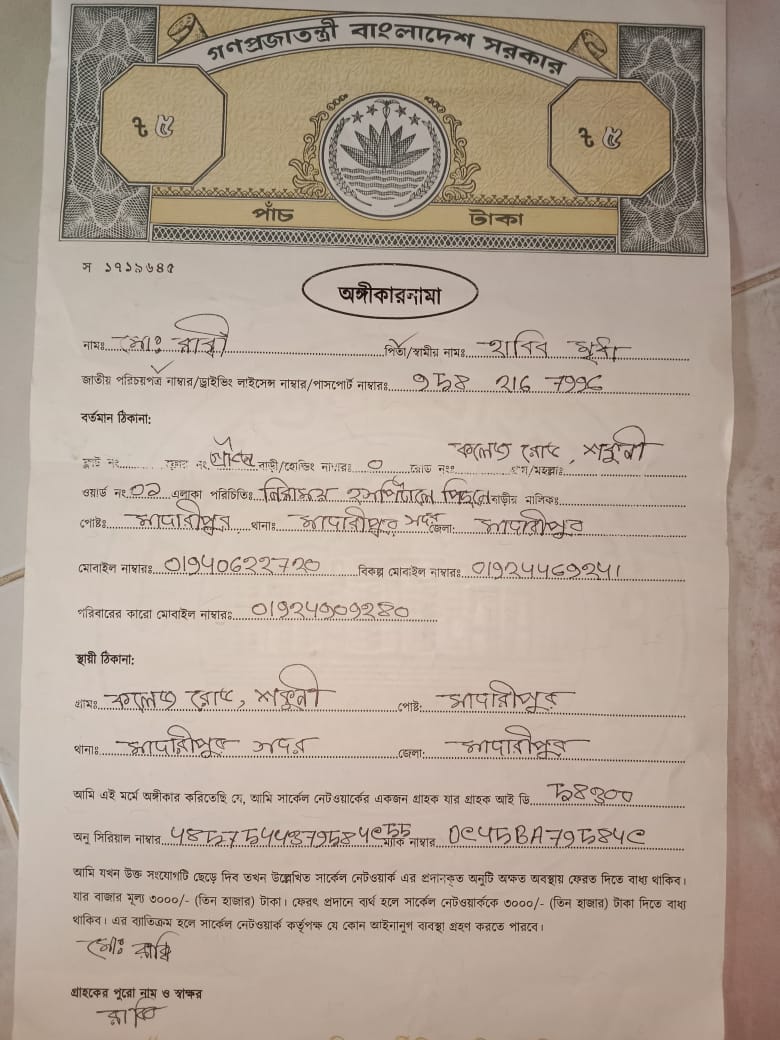 গণপ্রজাতন্ত্রী বাংলাদেশ সরকার
৳ ৫ ৳ ৫
পাঁচ টাকা
স ১৭১৯৬৪৫
অঙ্গীকারনামা
নামঃ মোঃ রাব্বী পিতা/স্বামীর নামঃ হাবিব মৃধা
জাতীয় পরিচয়পত্র নাম্বার/ড্রাইভিং লাইসেন্স নাম্বার/পাসপোর্ট নাম্বারঃ
বর্তমান ঠিকানা:
ফ্লাট নং বাড়ী/হোল্ডিং নাম্বারঃ 0 রোড নংঃ গ্রাম/মহল্লাঃ কলেজ রোড, শকুনী
ওয়ার্ড নং 02 এলাকা পরিচিতিঃ নিরাময় হসপিটালে পিছনে বাড়ীর মালিকঃ
পোষ্টঃ মাদারীপুর থানাঃ মাদারীপুর সদর জেলা: মাদারীপুর
মোবাইল নাম্বারঃ 01940622720 বিকল্প মোবাইল নাম্বারঃ 01924469241
পরিবারের কারো মোবাইল নাম্বারঃ
স্থায়ী ঠিকানা:
গ্রামঃ কলেজ রোড, শকুনী পোষ্ট: মাদারীপুর
থানাঃ মাদারীপুর সদর জেলা: মাদারীপুর
আমি এই মর্মে অঙ্গীকার করিতেছি যে, আমি সার্কেল নেটওয়ার্কের একজন গ্রাহক যার গ্রাহক আই ডি
অনু সিরিয়াল নাম্বার ম্যাক নাম্বার
আমি যখন উক্ত সংযোগটি ছেড়ে দিব তখন উল্লেখিত সার্কেল নেটওয়ার্ক এর প্রদানকৃত অনুটি অক্ষত অবস্থায় ফেরত দিতে বাধ্য থাকিব।
যার বাজার মূল্য ৩০০০/- (তিন হাজার) টাকা। ফেরৎ প্রদানে ব্যর্থ হলে সার্কেল নেটওয়ার্ককে ৩০০০/- (তিন হাজার) টাকা দিতে বাধ্য
থাকিব। এর ব্যতিক্রম হলে সার্কেল নেটওয়ার্ক কর্তৃপক্ষ যে কোন আইনানুগ ব্যবস্থা গ্রহণ করতে পারবে।
মোঃ রাব্বি
গ্রাহকের পুরো নাম ও স্বাক্ষর
রাব্বি